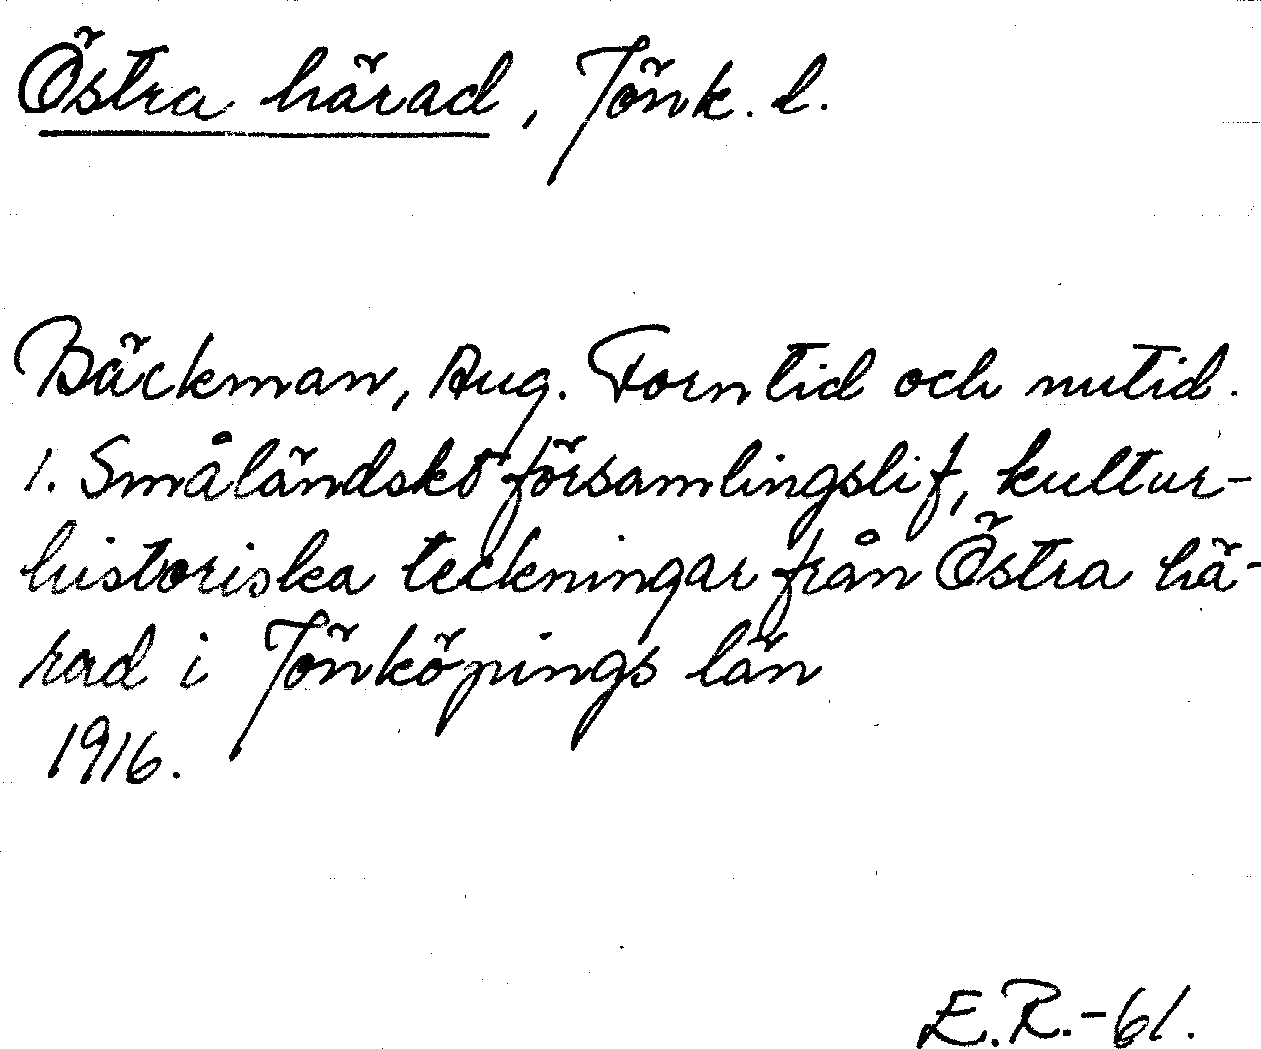 Östra härad, Jönk. l.
Bäckman, Aug. Forntid och nutid.
1. Småländskt församlingslif, kultur-
historiska teckningar från Östra hä-
rad i Jönköpings län
1916.
E.R.-61.